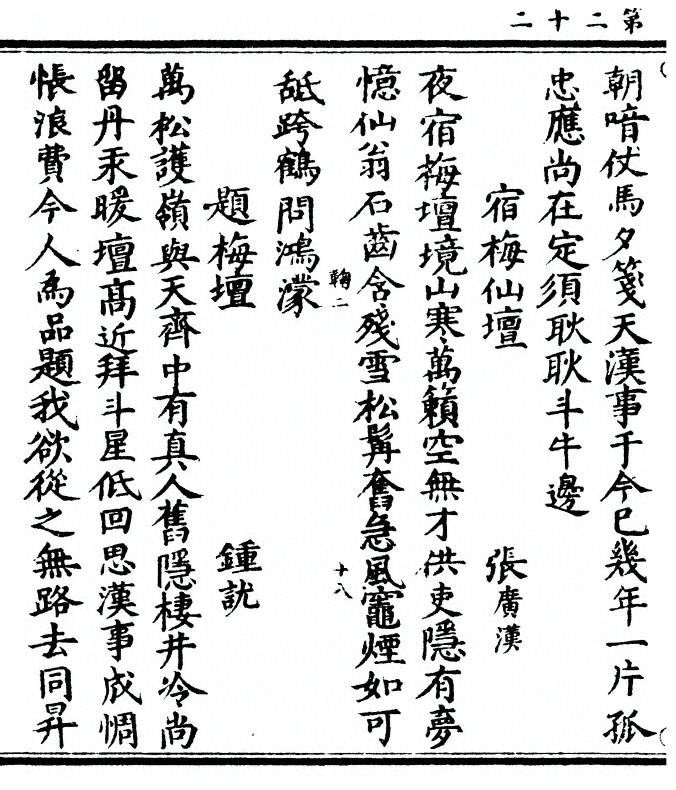 第二十二
朝喑仗馬夕箋天漢事于今已幾年一片孤
忠應尚在定須耿耿斗牛邊
宿梅仙壇　張廣漢
夜宿梅壇境山寒萬籟空無才供吏隱有夢
憶仙翁石齒含殘雪松髯奮急風竈煙如可
鞠二　十八
舐跨鶴問鴻濛
題梅壇　鍾訧
萬松護嶺與天齊中有真人舊隱棲井冷尚
留丹汞暖壇髙近拜斗星低回思漢事成惆
悵浪費今人為品題我欲從之無路去同昇